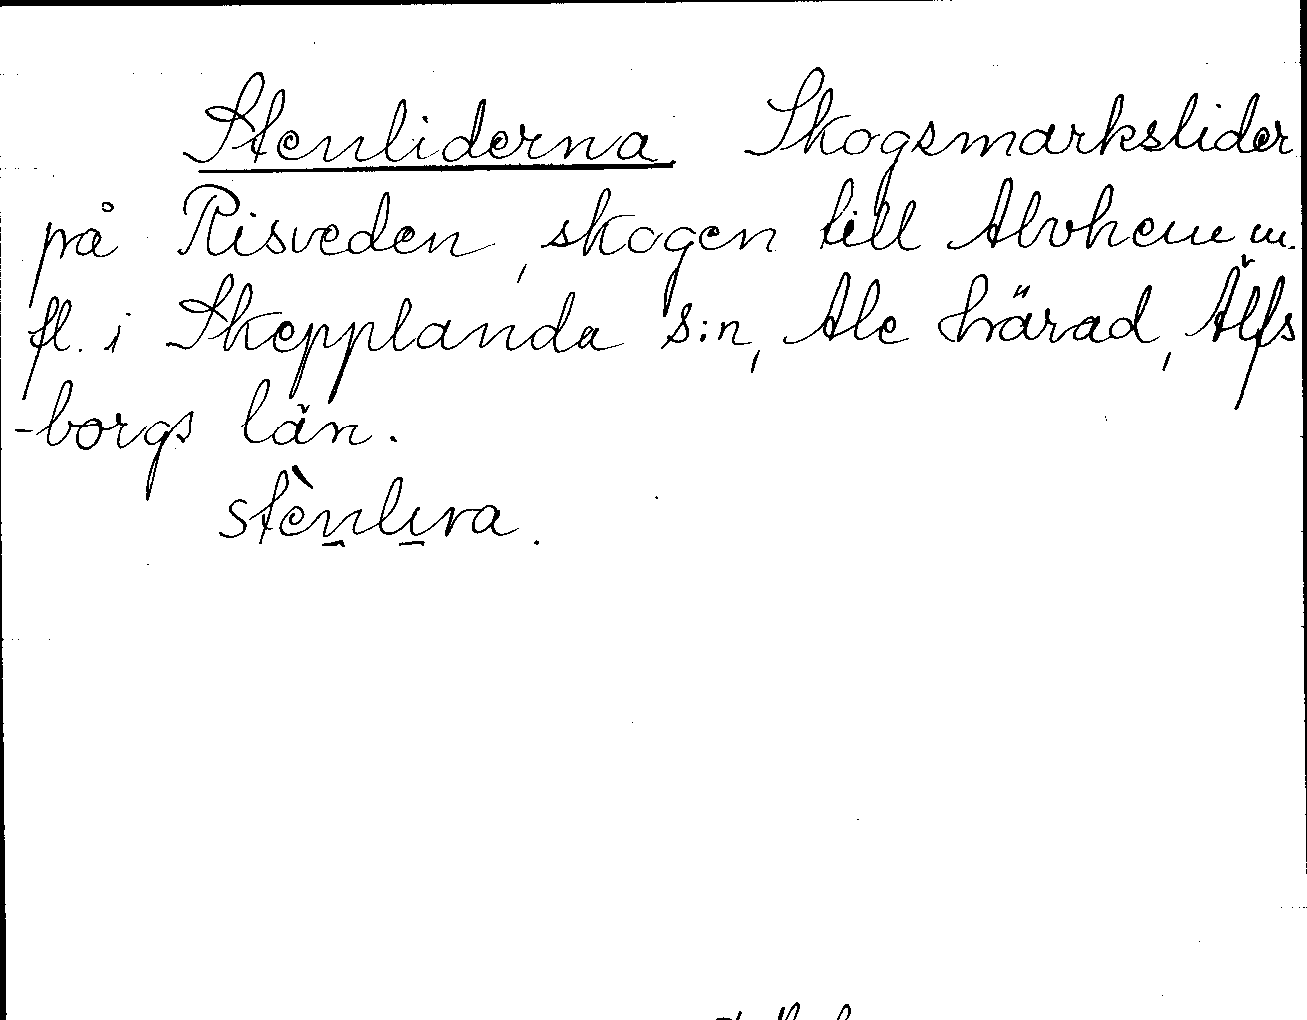 Stenliderna. Skogsmarkslider
på Risveden, skogen till Alvhem m.
fl. i Skepplanda s:n, Ale härad, Älfs
-borgs län.
stènlıra.